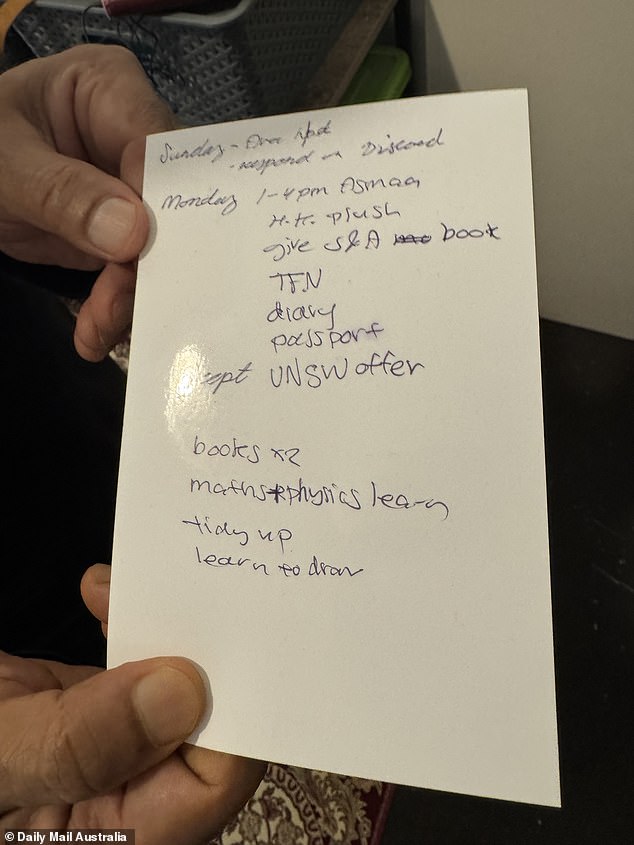 Sunday -
- respond on Discord
Monday 1-4pm Asmaa
H.K. plush
give S&A book
TFN
diary
passport
UNSW offer
books x2
maths+physics learn
tidy up
learn to draw
© Daily Mail Australia